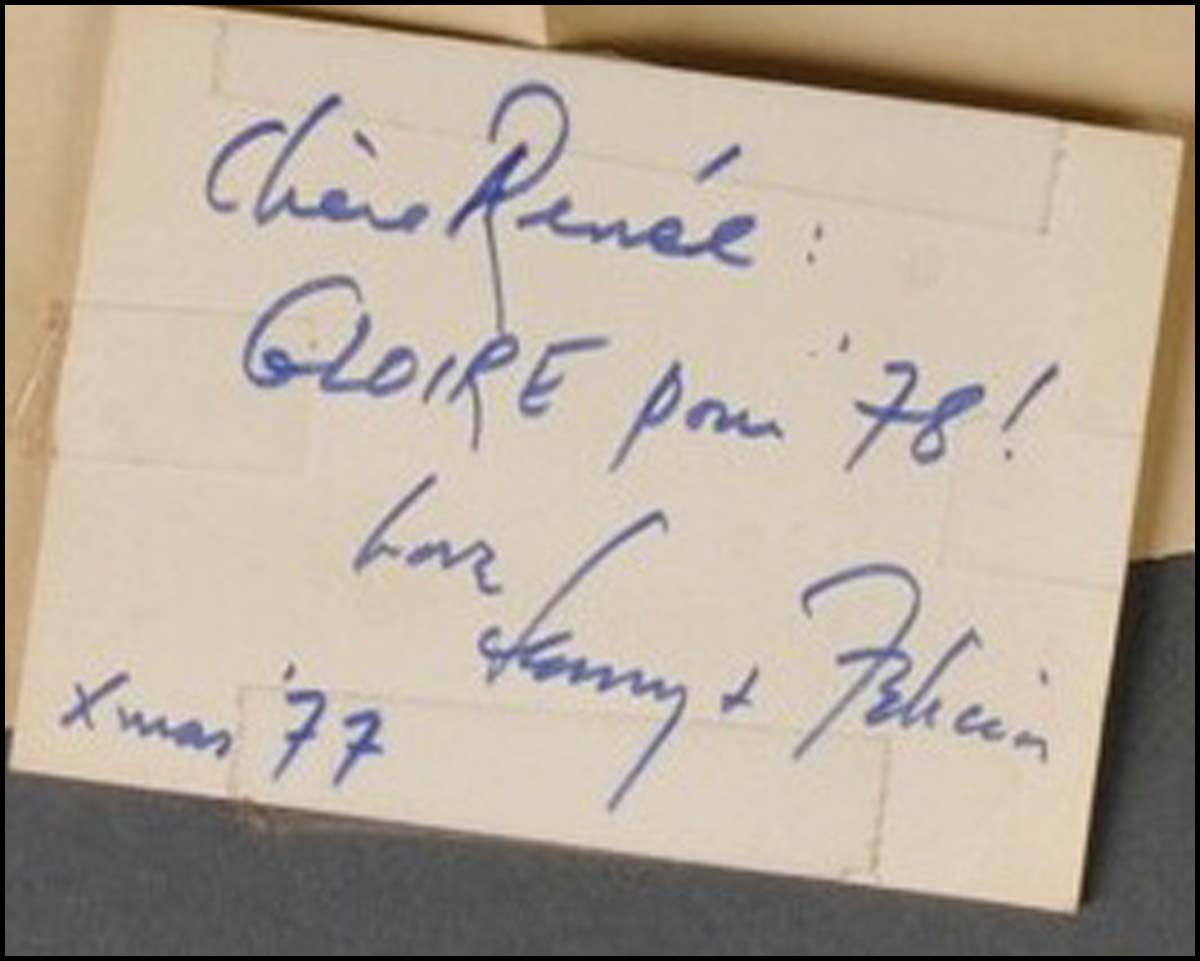 Chère Renée :
GLOIRE pour '78!
Love
Lenny + Felicia
Xmas '77